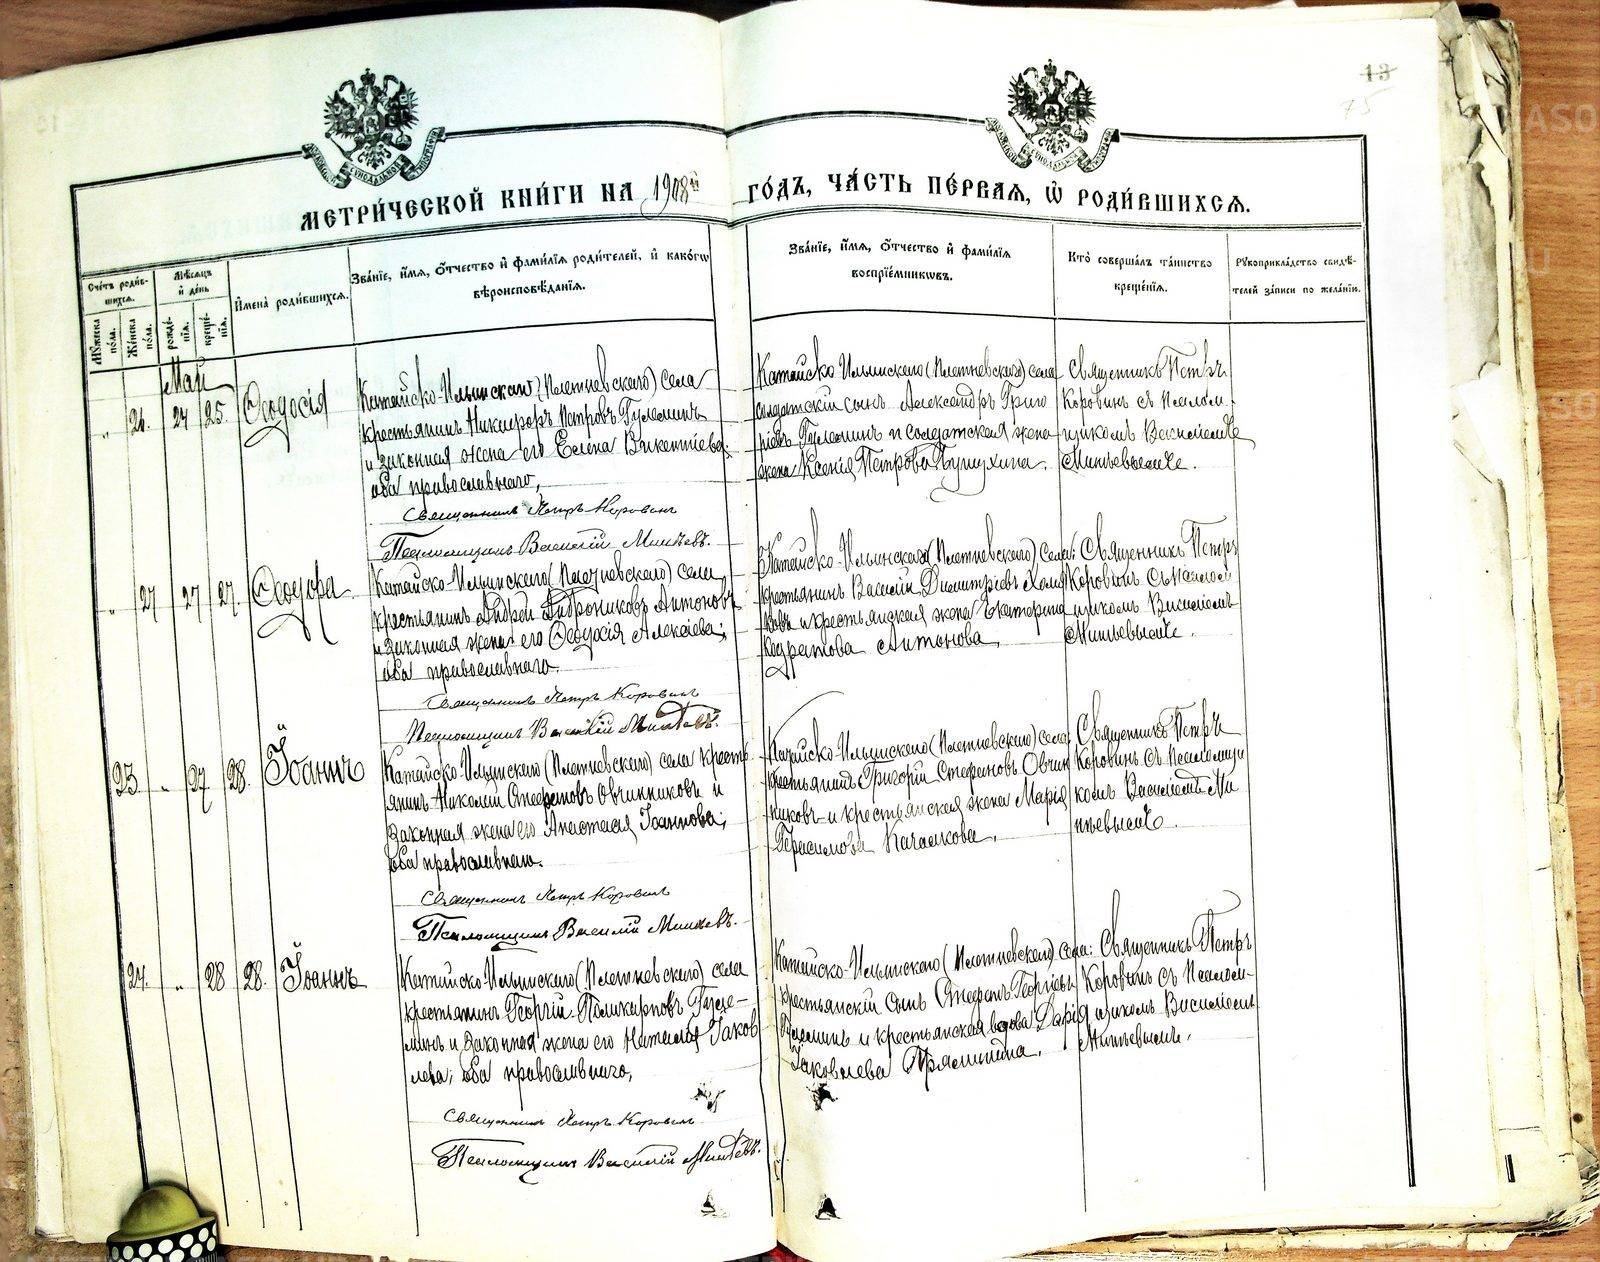 13
75
МЕТРИ́ЧЕСКОЙ КНИ́ГИ НА 1908й ГО́ДЪ, ЧА́СТЬ ПЕ́РВАЯ, Ѡ РОДИ́ВШИХСЯ.
Сче́тъ роди́в-
шихся.
Му́жеска по́ла.
Же́нска по́ла.
Мѣ́сяцъ
и де́нь
рожде́-
нія.
креще́-
нія.
Имена̀ роди́вшихся.
Зва́ніе, и́мя, о́тчество и фами́лія роди́телей, и како́гѡ
вѣроисповѣ́данія.
Зва́ніе, и́мя, о́тчество и фами́лія
воспріе́мникѡвъ.
Кто̀ соверша́лъ та́инство
креще́нія.
Рукоприкла́дство свидѣ́-
телей за́писи по жела́нію.
Май
„ 26. 24 25. Ѳеодосія
Катайско-Ильинскаго (Плетневскаго) села
крестьянинъ Никифоръ Петровъ Гулеминъ
и законная жена его Елена Викентіева;
оба православнаго,
Священникъ Петръ Коровинъ
Псаломщикъ Василій Минѣевъ.
Катайско-Ильинскаго (Плетневскаго) села
солдатскій сынъ Александръ Григо
ріевъ Гулеминъ и солдатская жена
жена Ксенія Петрова
Священникъ Петръ
Коровинъ съ Псалом-
щикомъ Василіемъ
Минѣевымъ.
„ 27 27 27. Ѳеодора
Катайско-Ильинскаго (Плетневскаго) села
крестьянинъ Андрей Андрониковъ Антоновъ
и законная жена его Ѳеодосія Алексіева;
оба православнаго.
Священникъ Петръ Коровинъ
Псаломщикъ Василій Минѣевъ.
Катайско-Ильинскаго (Плетневскаго) села:
крестьянинъ Василій Димитріевъ
и крестьянская жена Екатерина
Кодратова Антонова,
Священникъ Петръ
Коровинъ съ Псалом
щикомъ Василіемъ
Минѣевымъ.
23 „ 27 28. Іоаннъ
Катайско-Ильинскаго (Плетневскаго) села кресть
янинъ Николай Стефановъ Овчинниковъ и
законная жена его Анастасія Іоаннова;
оба православнаго.
Священникъ Петръ Коровинъ
Псаломщикъ Василій Минѣевъ.
Катайско-Ильинскаго (Плетневскаго) села:
крестьянинъ Григорій Стефановъ Овчин
никовъ и крестьянская жена Марія
Герасимова Качалкова.
Священникъ Петръ
Коровинъ съ Псаломщи
комъ Василіемъ Ми
нѣевымъ.
24. „ 28 28. Іоаннъ
Катайско-Ильинскаго (Плетневскаго) села
крестьянинъ Георгій Поликарповъ Гуле-
минъ и законная жена его Наталія Іаков
лева; оба православнаго,
Священникъ Петръ Коровинъ
Псаломщикъ Василій Минѣевъ.
Катайско-Ильинскаго (Плетневскаго) села:
крестьянскій сынъ Стефанъ Георгіевъ
Гулеминъ и крестьянская вдова Дарія
Іаковлева Прямицина.
Священникъ Петръ
Коровинъ съ Псалом-
щикомъ Василіемъ
Минѣевымъ.